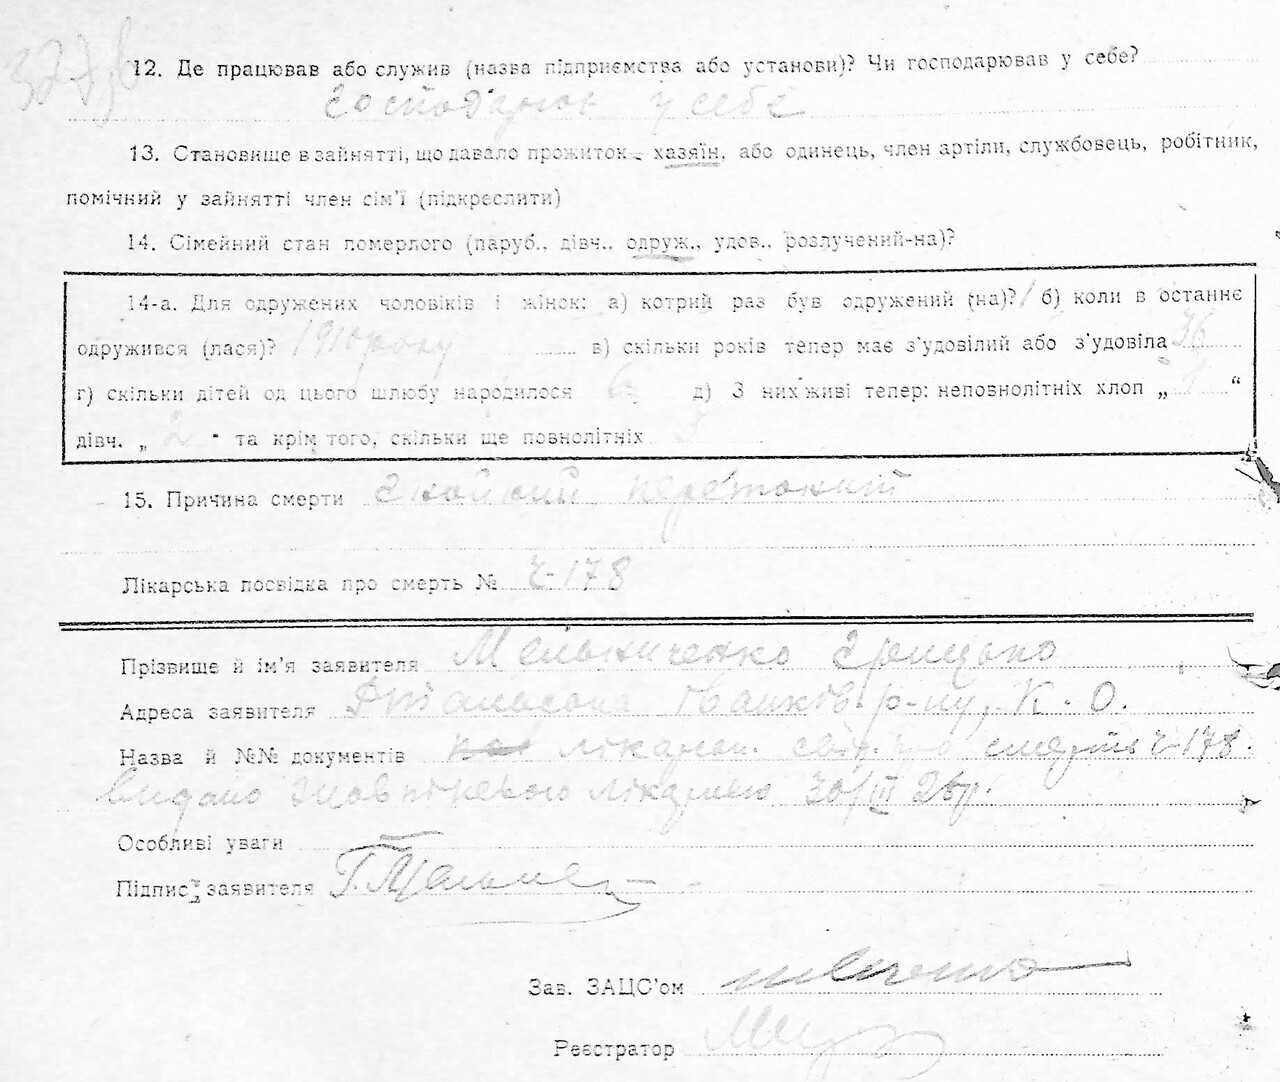 377,б
12. Де працював або служив (назва підприємства або установи)? Чи господарював у себе?
господарюв у себе
13. Становище в зайнятті, що давало прожиток – хазяїн, або одинець, член артіли, службовець, робітник,
помічний у зайнятті член сім'ї (підкреслити)
14. Сімейний стан померлого (паруб., дівч., одруж., удов., розлучений-на)?
14-а. Для одружених чоловіків і жінок: а) котрий раз був одружений (на)? 1 б) коли в останнє
одружився (лася)? 1910 року в) скільки років тепер має з'удовілий або з'удовіла 36
г) скільки дітей од цього шлюбу народилося 6 д) З них живі тепер: неповнолітніх хлоп „ 1 “
дівч. „ 2 " та крім того, скільки ще повнолітніх 3
15. Причина смерти гнойний перетоніт
Лікарська посвідка про смерть № Ч-178
Прізвище й ім'я заявителя Мельниченко Грицько
Адреса заявителя Іванків. р-ну, К. О.
Назва й №№ документів лікарск. свід. про смерть Ч-178.
Видано лікарнею 30/III 26 р.
Особливі уваги
Підпис заявителя Г. Мельнич
Зав. ЗАЦС'ом
Реєстратор